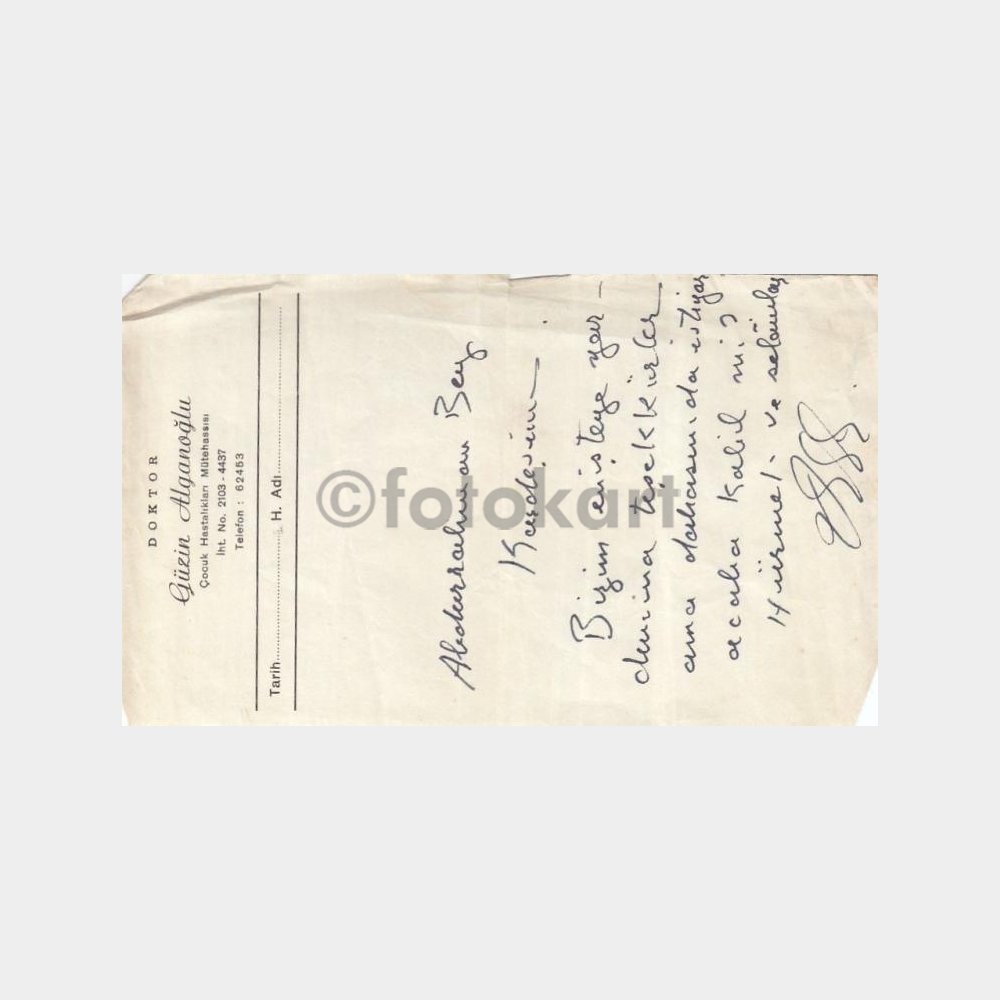 DOKTOR
Güzin Alganoğlu
Çocuk Hastalıkları Mütehassısı
İht. No. 2103 - 4437
Telefon : 62453
Tarih........................ H. Adı........................
Abdurrahman Bey
Kardeşim
Bizim enişteye yar-
dımına teşekkürler
ama dahasını da istiyor
acaba kabil mi?
Hürmet ve selâmlar
©fotokart